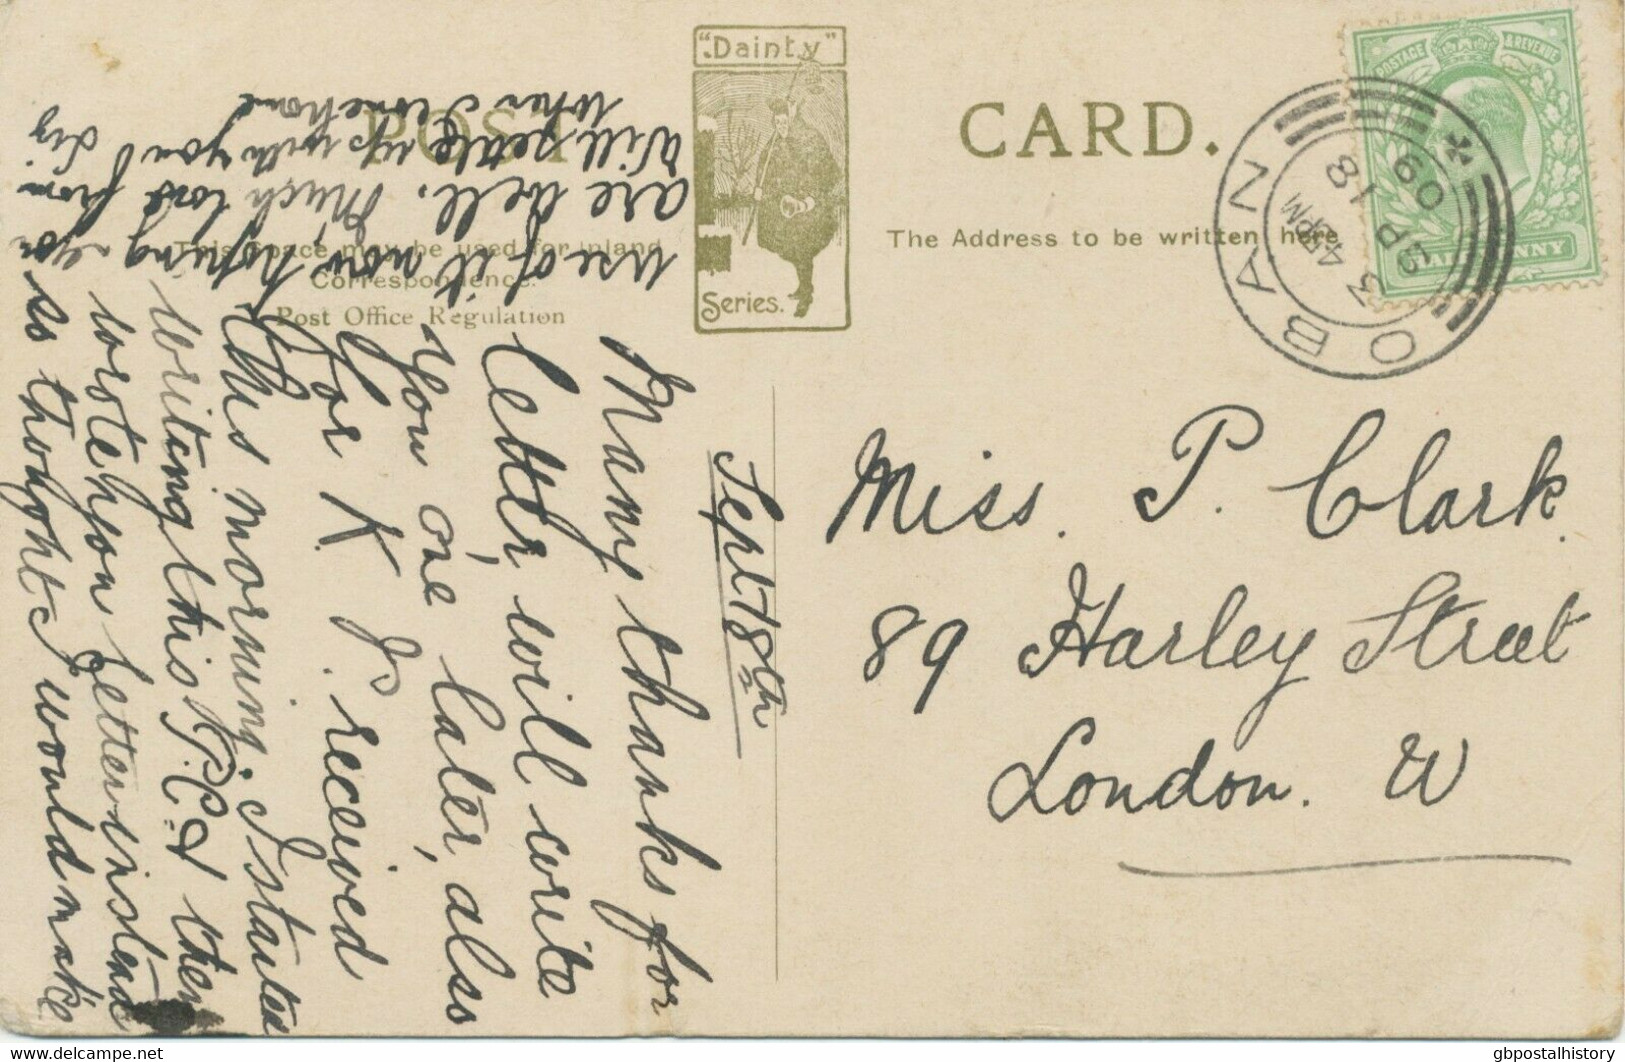 "Dainty"
Series.
POST CARD.
This Space may be used for Inland
Correspondence.
Post Office Regulation
The Address to be written here
POSTAGE & REVENUE
HALFPENNY
OBAN
3 45PM
SP 18
09
Sept 18th
Many thanks for
letter, will write
you one later, also
for K. I received
this morning. I started
writing this P.C. & then
wrote you letter instead
so thought I would make
use of it now hoping you
are well. Much love from
Will settle up with you Liz
when I come home
Miss. P. Clark.
89 Harley Street
London. W
delcampe.net
gbpostalhistory